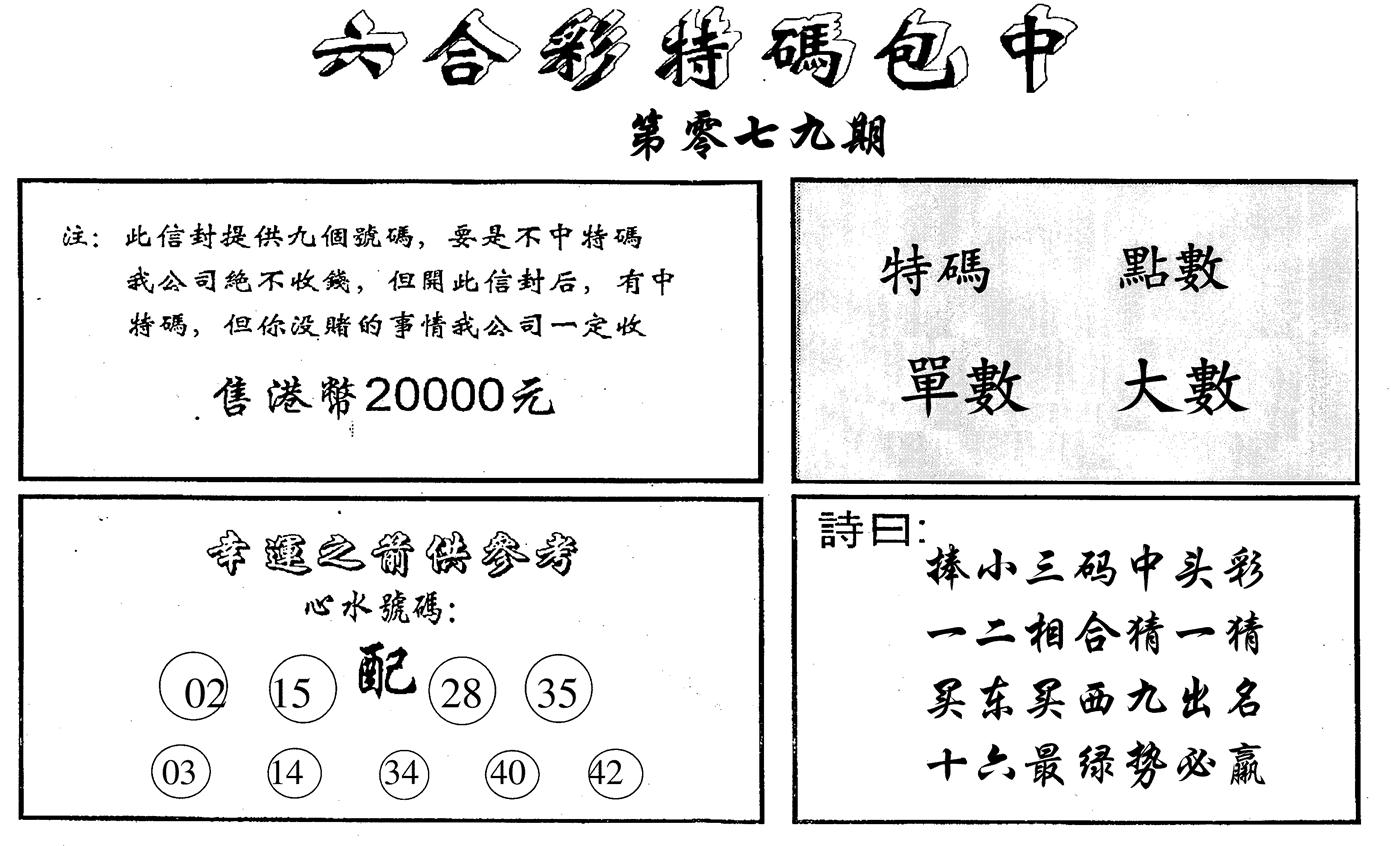 六合彩特碼包中
第零七九期
注：此信封提供九個號碼，要是不中特碼
我公司絕不收錢，但開此信封后，有中
特碼，但你没賭的事情我公司一定收
售港幣20000元
特碼 點數
單數 大數
幸運之箭供參考
心水號碼：
02 15 配 28 35
03 14 34 40 42
詩曰：
捧小三码中头彩
一二相合猜一猜
买东买西九出名
十六最绿势必赢